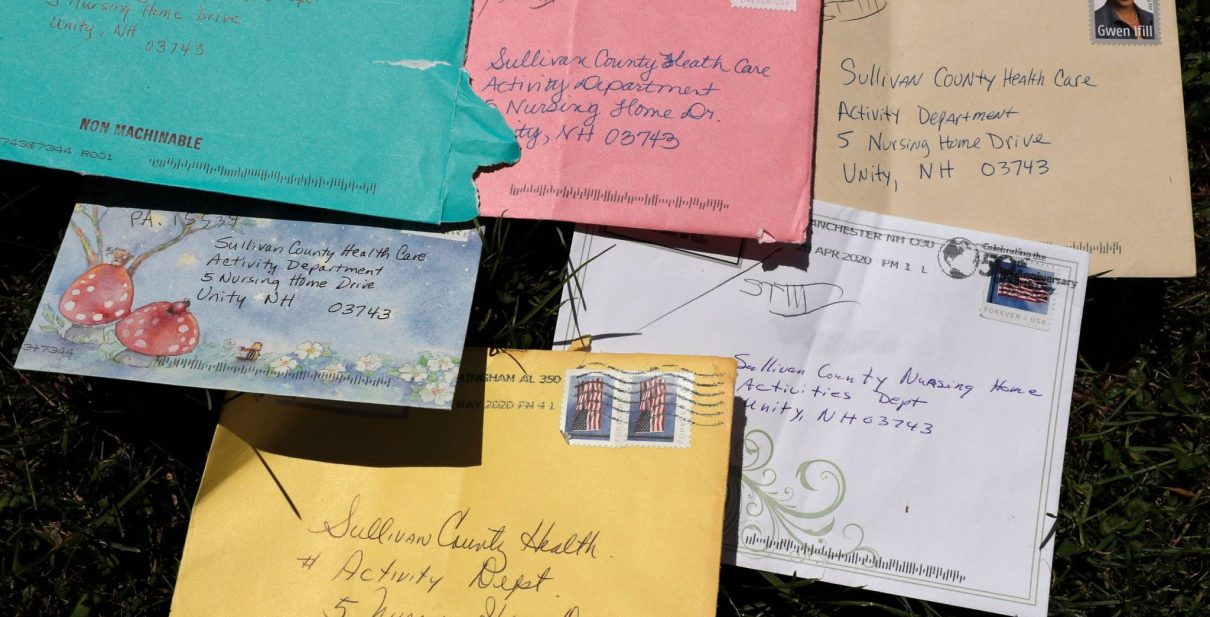 Unity, NH
03743
NON MACHINABLE
R001
FOREVER/USA
Sullivan County Heath Care
Activity Department
5 Nursing Home Dr.
NH 03743
Gwen Ifill
Sullivan County Health Care
Activity Department
5 Nursing Home Drive
Unity, NH 03743
PA. 15537
Sullivan County Health Care
Activity Department
5 Nursing Home Drive
Unity NH
03743
APR 2020 PM 1 L
Celebrating the
FOREVER / USA
Sullivan County Nursing Home
Activities Dept
Unity, NH 03743
AL 350
2020 PM 4 L
Sullivan County Health
# Activity Dept.
5